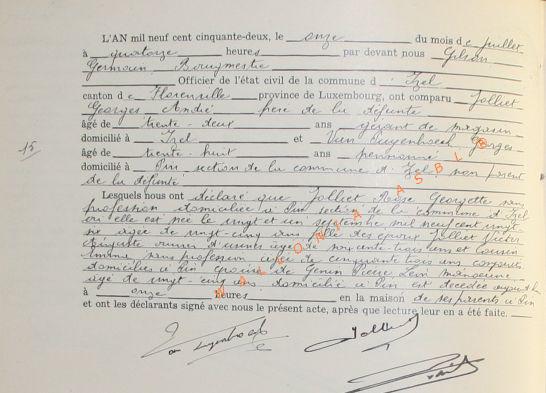 L'AN mil neuf cent cinquante-deux, le onze du mois de juillet
à quatorze heures par devant nous Gilson
Germain Bourgmestre
Officier de l'état civil de la commune d' Izel
canton de Florenville province de Luxembourg, ont comparu Jolliet
Georges André père de la défunte
âgé de trente-deux ans gérant de magasin
domicilié à Izel et Van Georges
âgé de trente-huit ans pensionné
domicilié à Pin section de la commune d' Izel non parent
de la défunte
Lesquels nous ont déclaré que Jolliet Rose Georgette sans
profession domiciliée à Pin section de la commune d' Izel
où elle est née le vingt et un septembre mil neuf cent vingt-
six âgée de vingt-cinq ans fille des époux Jolliet
Auguste ouvrier d'usines âgé de soixante trois ans et
sans profession âgée de cinquante trois ans conjoints
domiciliés à Pin épouse de Genin Pierre Léon manoeuvre
âgé de vingt-cinq ans domicilié à Pin est décédée aujourd'hui
à onze heures en la maison de ses parents à Pin
et ont les déclarants signé avec nous le présent acte, après que lecture leur en a été faite.
15
WALLONIA ASBL